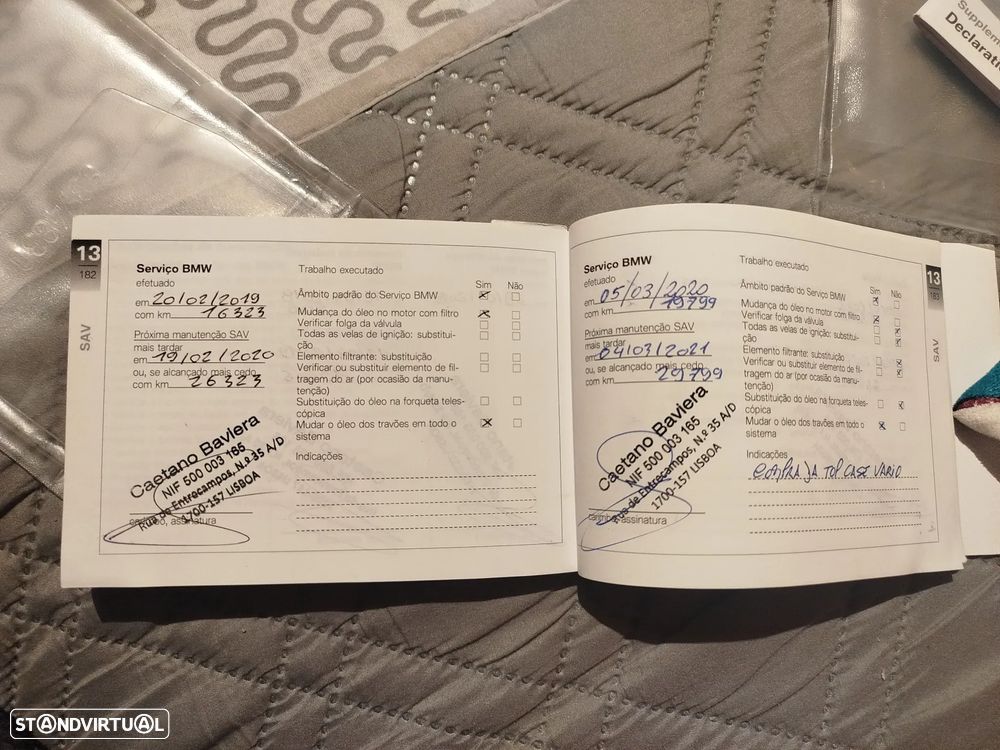 Supplem
Declarati
13
182
SAV
Serviço BMW
efetuado
em 20/02/2019
com km 16323
Próxima manutenção SAV
mais tardar
em 19/02/2020
ou, se alcançado mais cedo
com km 26323
Caetano Baviera
NIF 500 003 165
Rua de Entrecampos, N.º 35 A/D
1700-157 LISBOA
carimbo, assinatura
Trabalho executado
Sim Não
Âmbito padrão do Serviço BMW
Mudança do óleo no motor com filtro
Verificar folga da válvula
Todas as velas de ignição: substitui-
ção
Elemento filtrante: substituição
Verificar ou substituir elemento de fil-
tragem do ar (por ocasião da manu-
tenção)
Substituição do óleo na forqueta teles-
cópica
Mudar o óleo dos travões em todo o
sistema
Indicações
Serviço BMW
efetuado
em 05/03/2020
com km 19799
Próxima manutenção SAV
mais tardar
em 04/03/2021
ou, se alcançado mais cedo
com km 29799
Caetano Baviera
NIF 500 003 165
Rua de Entrecampos, N.º 35 A/D
1700-157 LISBOA
carimbo, assinatura
Trabalho executado
Sim Não
Âmbito padrão do Serviço BMW
Mudança do óleo no motor com filtro
Verificar folga da válvula
Todas as velas de ignição: substitui-
ção
Elemento filtrante: substituição
Verificar ou substituir elemento de fil-
tragem do ar (por ocasião da manu-
tenção)
Substituição do óleo na forqueta teles-
cópica
Mudar o óleo dos travões em todo o
sistema
Indicações
TOP CASE VARIO
13
183
SAV
STANDVIRTUAL